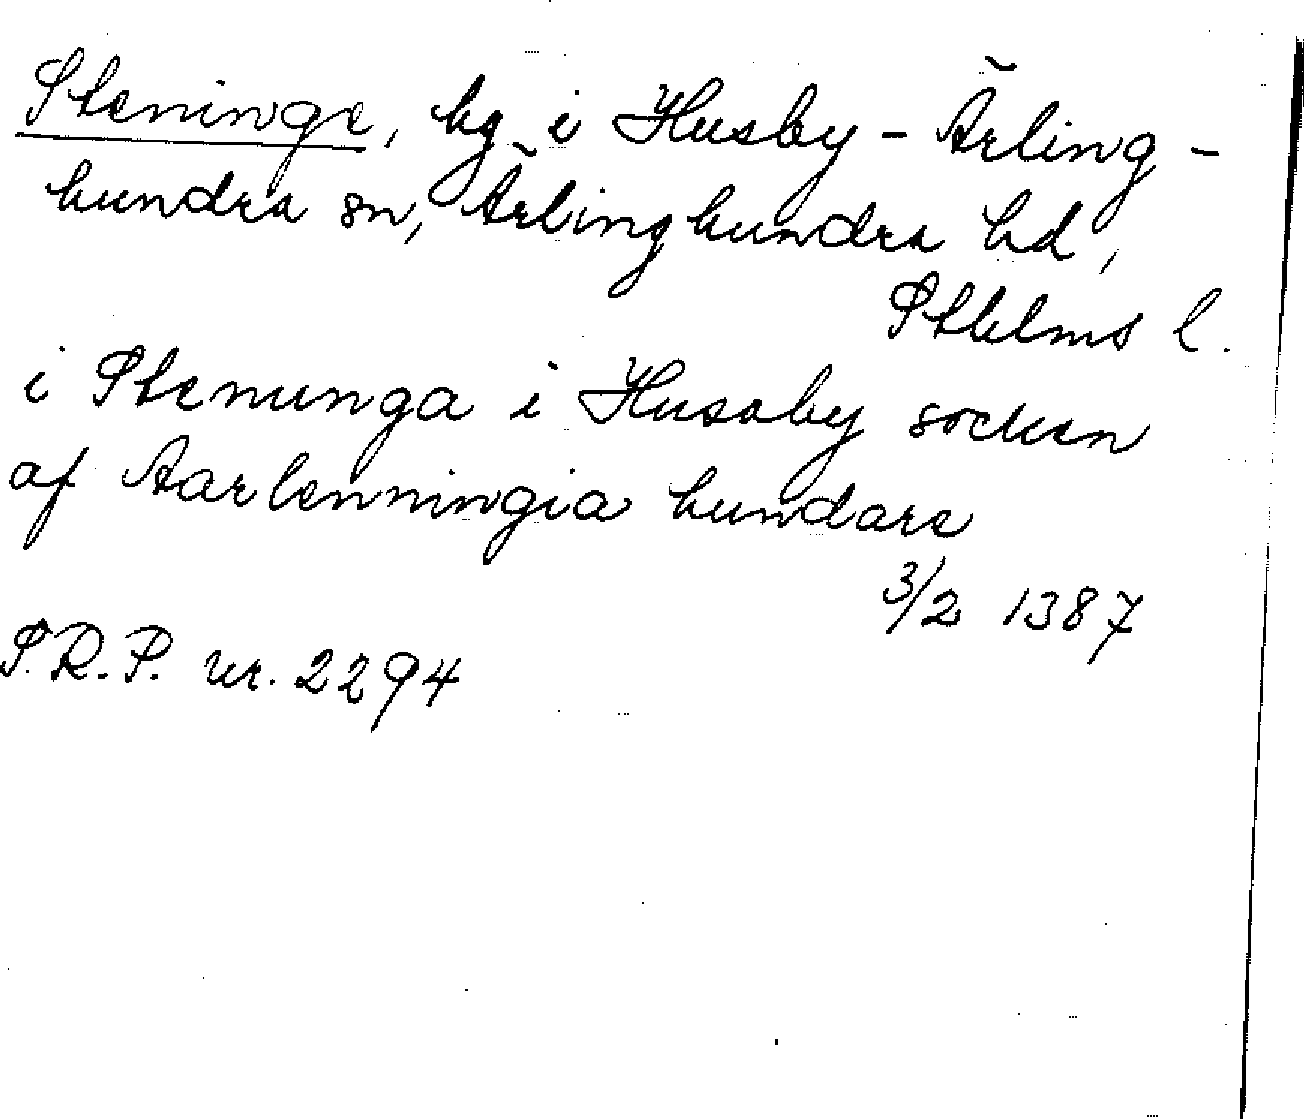 Steninge, by i Husby-Ärling-
hundra sn, Ärlinghundra hd,
Sthlms l.
i Stenunga i Husaby socken
af Aarlenningia hundare
3/2 1387
S.R.P. nr. 2294